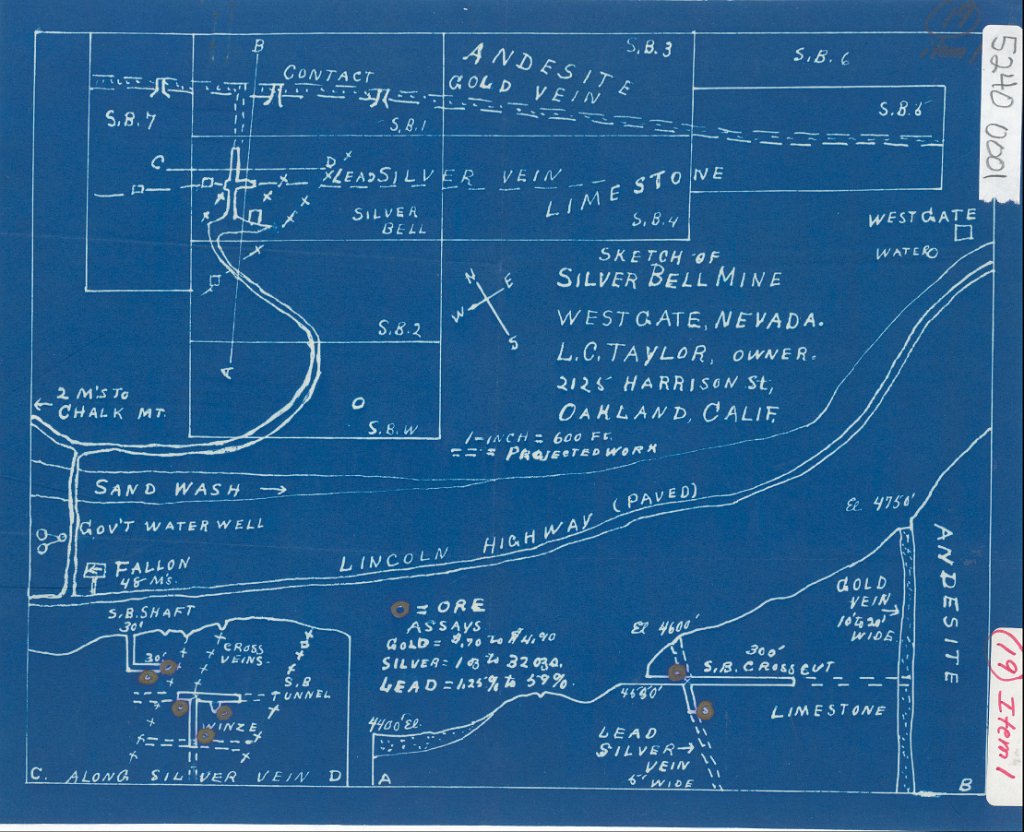 5240 0001
(19) Item 1
B
CONTACT
ANDESITE
GOLD VEIN
S.B.3
S.B.6
S.B.5
S.B.7
S.B.1
C
D
LEAD SILVER VEIN
LIMESTONE
SILVER
BELL
S.B.4
WESTGATE
WATER O
SKETCH OF
SILVER BELL MINE
WESTGATE, NEVADA.
L.C. TAYLOR, OWNER.
2125 HARRISON St,
OAKLAND, CALIF.
1-INCH = 600 FT.
=== = PROJECTED WORK
N
E
W
S
S.B.2
A
S.B.W
2 M'S TO
CHALK MT.
SAND WASH
GOV'T WATER WELL
FALLON
48 M's.
LINCOLN HIGHWAY (PAVED)
S.B. SHAFT
30'
30'
CROSS
VEINS.
S.B
TUNNEL
WINZE
C. ALONG SILVER VEIN D
= ORE
ASSAYS
GOLD = $.70 to $4.90
SILVER = 1 oz to 32 ozs.
LEAD = 1.25% to 59%.
El 4750'
ANDESITE
GOLD
VEIN
10' to 20'
WIDE.
El 4600'
300'
S.B. CROSSCUT
LIMESTONE
4400' El.
LEAD
SILVER
VEIN
5' WIDE
A
B